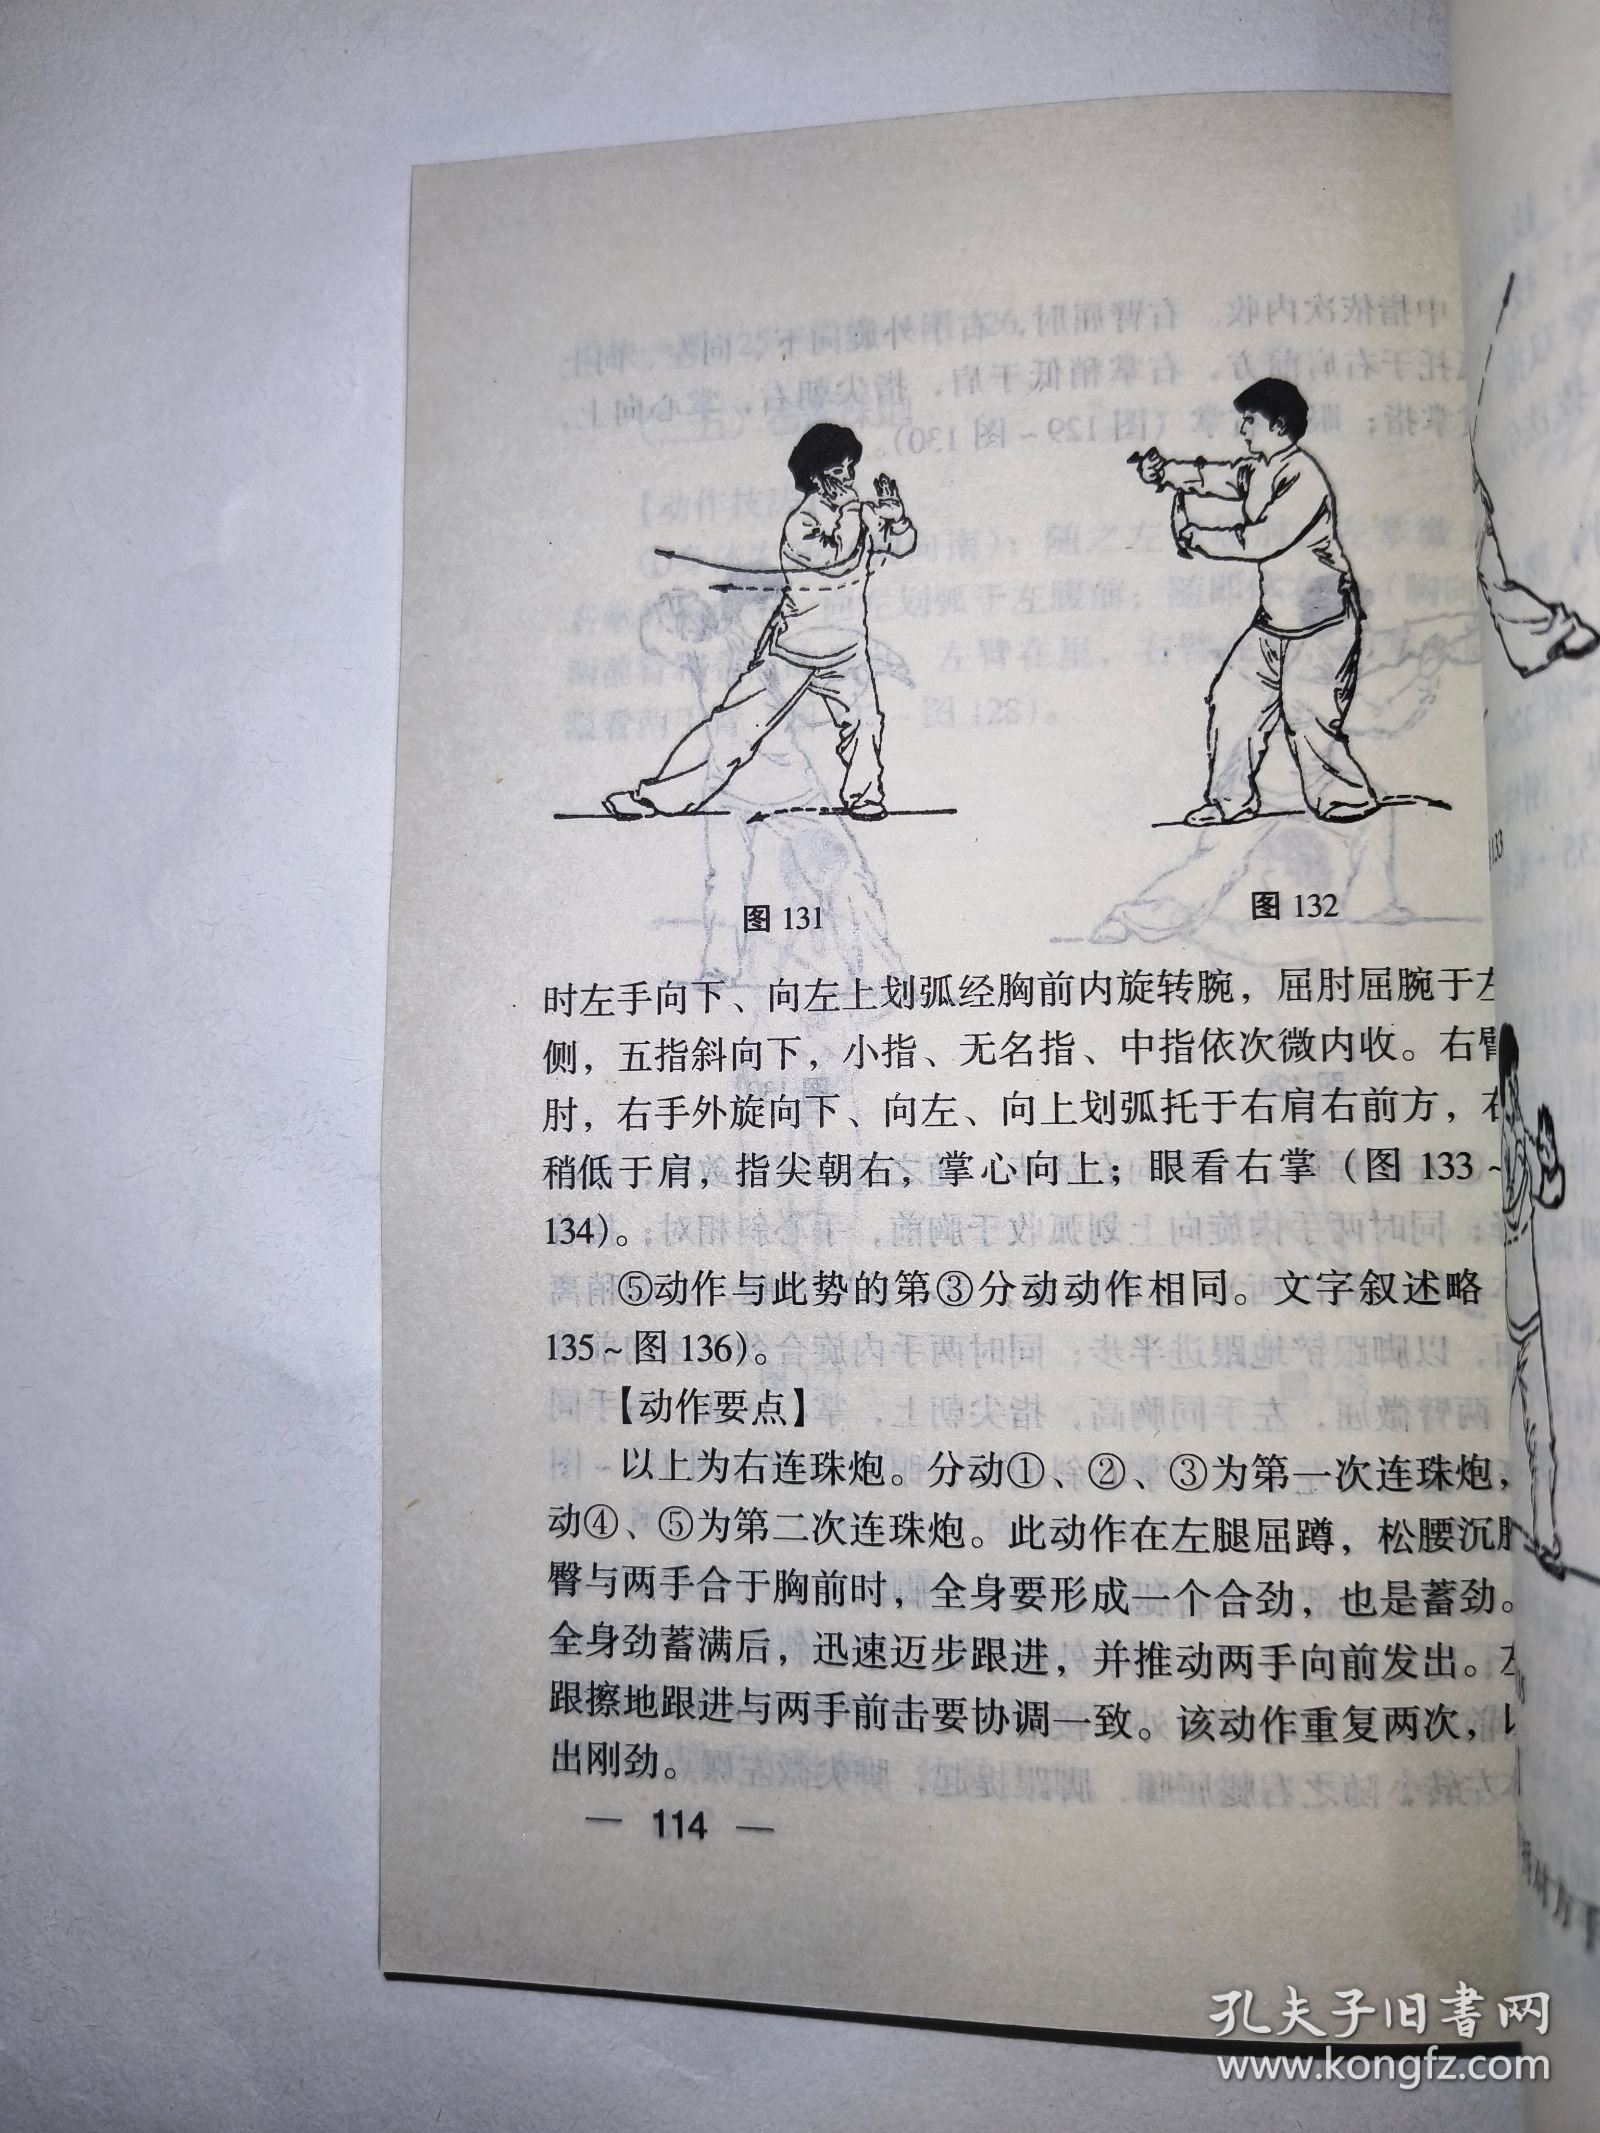 图 131
图 132
时左手向下、向左上划弧经胸前内旋转腕，屈肘屈腕于左
侧，五指斜向下，小指、无名指、中指依次微内收。右臂
肘，右手外旋向下、向左、向上划弧托于右肩右前方，右
稍低于肩，指尖朝右，掌心向上；眼看右掌（图 133～
134）。
⑤动作与此势的第③分动动作相同。文字叙述略
135～图 136）。
【动作要点】
以上为右连珠炮。分动①、②、③为第一次连珠炮，
动④、⑤为第二次连珠炮。此动作在左腿屈蹲，松腰沉
臀与两手合于胸前时，全身要形成一个合劲，也是蓄劲。
全身劲蓄满后，迅速迈步跟进，并推动两手向前发出。
跟擦地跟进与两手前击要协调一致。该动作重复两次，
出刚劲。
— 114 —
133
孔夫子旧书网
www.kongfz.com